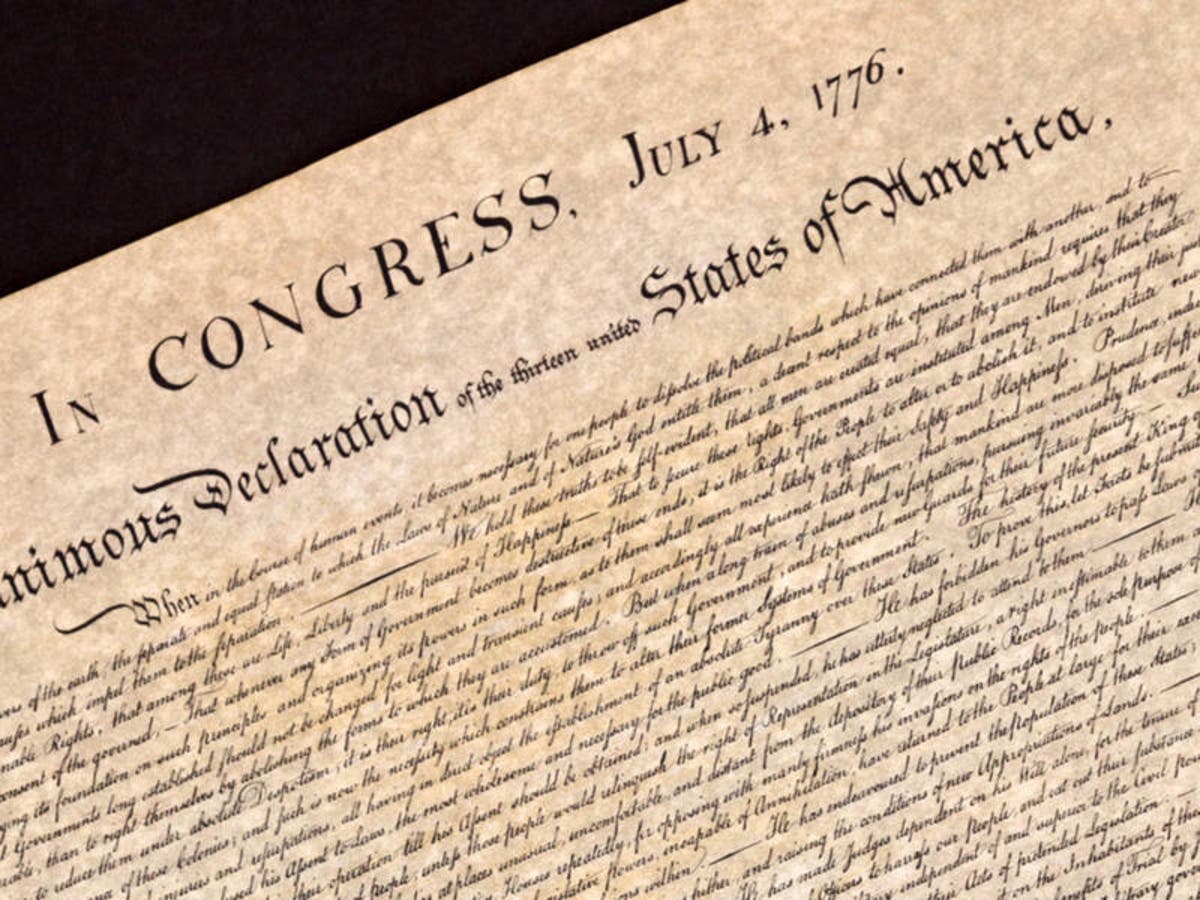 IN CONGRESS, JULY 4, 1776.
Declaration of the thirteen united States of America,
When in the Course of human events, it becomes necessary for one people to dissolve the political bands which have connected them with another, and to
of the earth, the separate and equal station to which the Laws of Nature and of Nature's God entitle them, a decent respect to the opinions of mankind requires that they
which impel them to the separation. We hold these truths to be self-evident, that all men are created equal, that they are endowed by their Creator
Rights, that among these are Life, Liberty and the pursuit of Happiness.— That to secure these rights, Governments are instituted among Men, deriving their
of the governed, — That whenever any Form of Government becomes destructive of these ends, it is the Right of the People to alter or to abolish it, and to institute new
its foundation on such principles and organizing its powers in such form, as to them shall seem most likely to effect their Safety and Happiness. Prudence,
Governments long established should not be changed for light and transient causes; and accordingly all experience hath shewn, that mankind are more disposed to suffer
than to right themselves by abolishing the forms to which they are accustomed. But when a long train of abuses and usurpations, pursuing invariably the same
to reduce them under absolute Despotism, it is their right, it is their duty, to throw off such Government, and to provide new Guards for their future security.—
of these Colonies; and such is now the necessity which constrains them to alter their former Systems of Government. The history of the present King
injuries and usurpations, all having in direct object the establishment of an absolute Tyranny over these States. To prove this, let Facts be
his Assent to Laws, the most wholesome and necessary for the public good. He has forbidden his Governors to pass Laws
their operation till his Assent should be obtained; and when so suspended, he has utterly neglected to attend to them.
of people, unless those people would relinquish the right of Representation in the Legislature, a right inestimable to them
at places unusual, uncomfortable, and distant from the depository of their public Records, for the sole purpose of
Houses repeatedly, for opposing with manly firmness his invasions on the rights of the people.
powers, incapable of Annihilation, have returned to the People at large for their
within. He has endeavoured to prevent the population of these States;
hither, and raising the conditions of new Appropriations of Lands.
He has made Judges dependent on his Will alone, for the tenure of
to harrass our people, and eat out their substance
independent of and superior to the Civil
their Acts of pretended Legislation
on the Inhabitants of
of Trial by